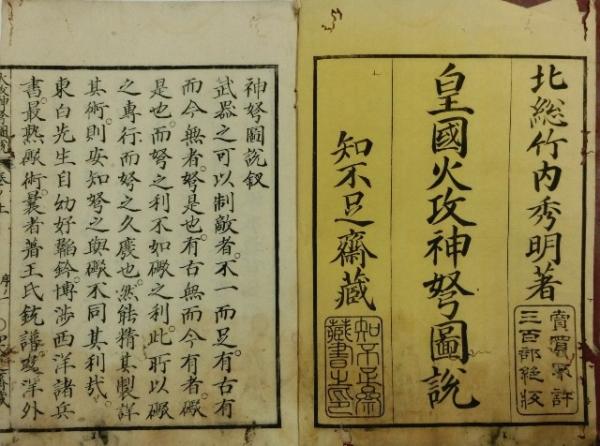 北総竹内秀明著
賣買不許
三百部絶板
皇國火攻神弩圖說
知不足齋藏
知不足齋
藏書之印
神弩圖說叙
武器之可以制敵者。不一而足。有古有
而今無者。弩是也。有古無而今有者。礮
是也。而弩之利不如礮之利。此所以礮
之專行而弩之久廢也。然能精其製詳
其術。則安知弩之與礮不同其利哉。
東白先生自幼好韜鈐。博涉西洋諸兵
書。最熟礮術。曩者著王氏銃譜
洋外
火攻神弩圖說 卷之上 序一